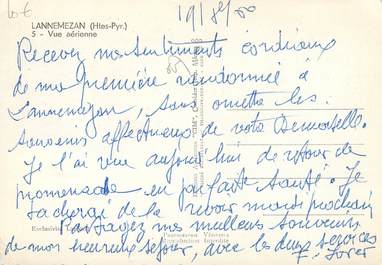 LANNEMEZAN (Htes-Pyr.)
5 - Vue aérienne
Recevez nos sentiments cordiaux
de ma première randonnée à
Lannemezan, sans omettre les
souvenirs affectueux de votre Demoiselle.
Je l'ai vue aujourd'hui de retour de
promenade en parfaite santé. Je
tacherai de la revoir mardi prochain
Partagez mes meilleurs souvenirs
de mon heureux séjour, avec les deux